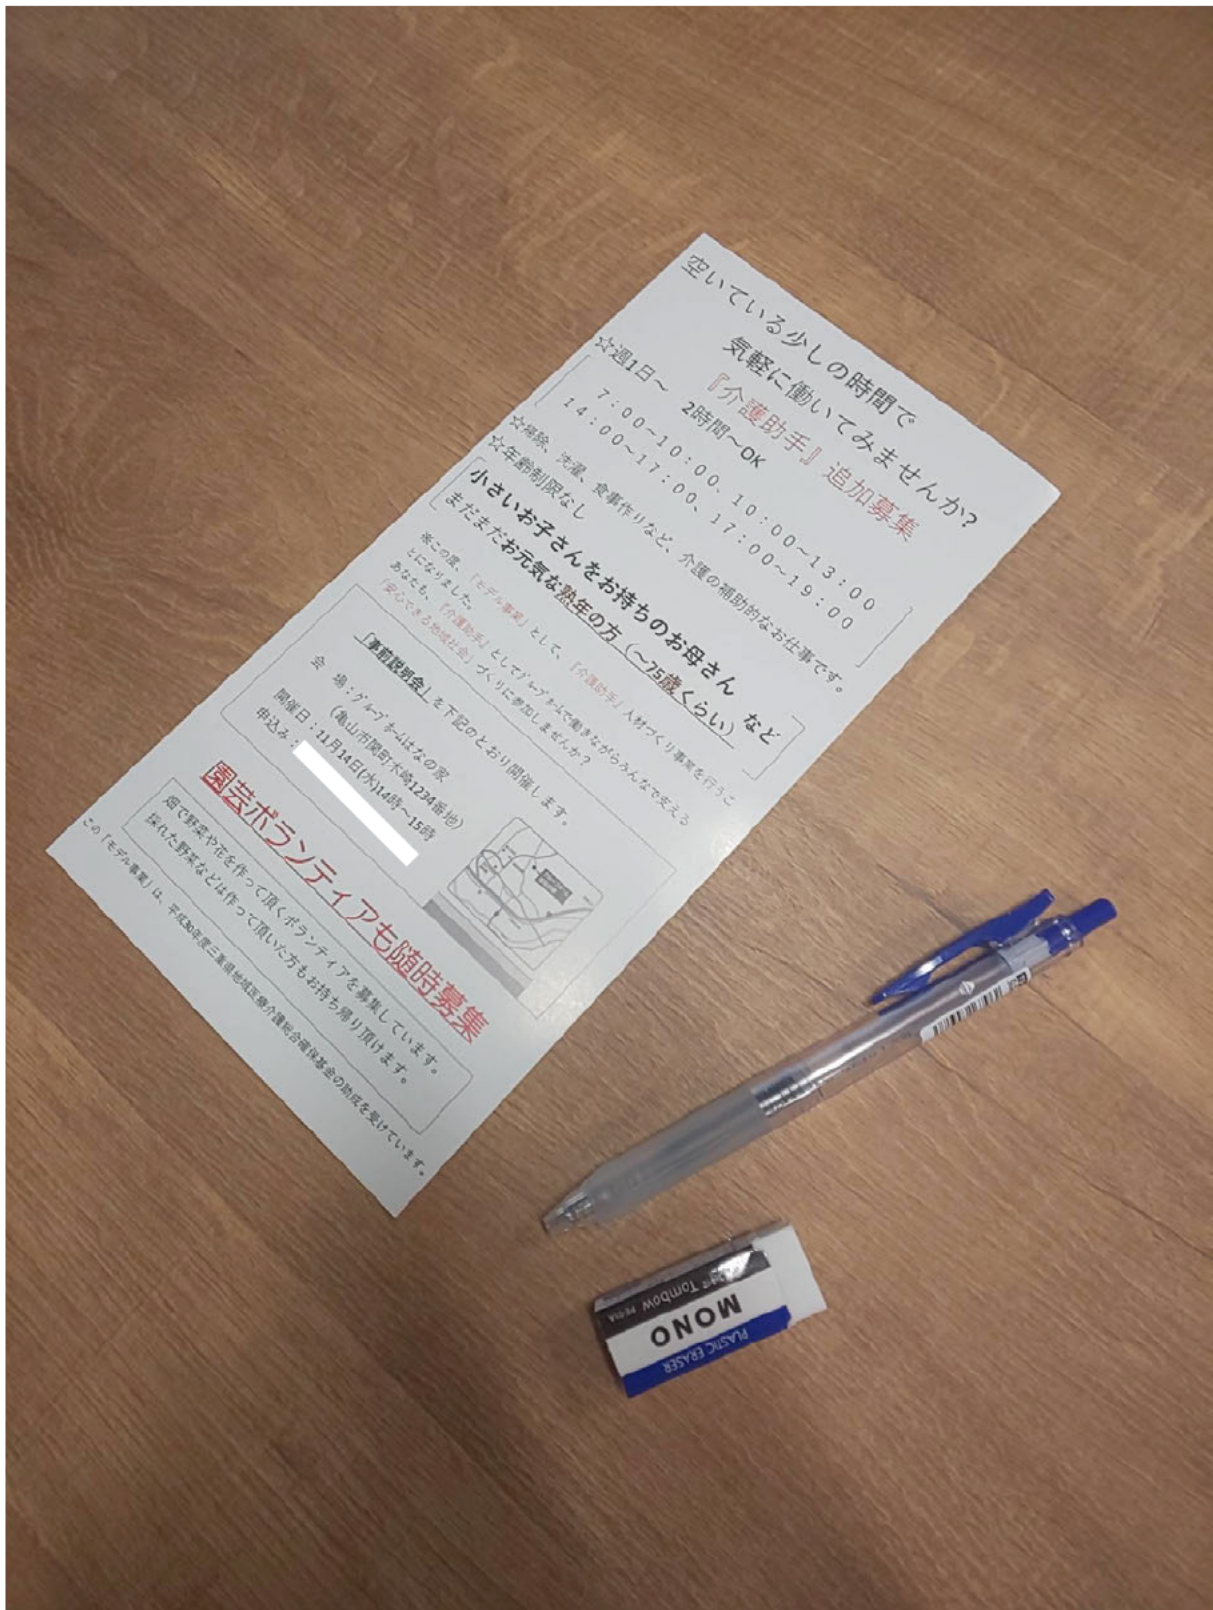 空いている少しの時間で
気軽に働いてみませんか?
『介護助手』追加募集
☆週1日～ 2時間～OK
7:00~10:00、10:00~13:00
14:00~17:00、17:00~19:00
☆掃除、洗濯、食事作りなど、介護の補助的なお仕事です。
☆年齢制限なし
小さいお子さんをお持ちのお母さん など
まだまだお元気な熟年の方(～75歳くらい)
※この度、「モデル事業」として、『介護助手』人材づくり事業を行うこ
とになりました。
あなたも、『介護助手』としてグループホームで働きながらみんなで支える
「安心できる地域社会」づくりに参加しませんか?
「事前説明会」を下記のとおり開催します。
会 場:グループホームはなの家
(亀山市関町木崎1234番地)
開催日:11月14日(水)14時～15時
申込み:
園芸ボランティアも随時募集
畑で野菜や花を作って頂くボランティアを募集しています。
採れた野菜などは作って頂いた方もお持ち帰り頂けます。
この「モデル事業」は、平成30年度三重県地域医療介護総合確保基金の助成を受けています。
Tombow PE-01A
MONO
PLASTIC ERASER